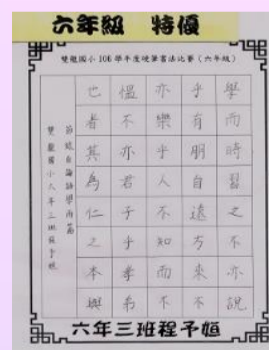 六年級 特優
雙龍國小 106 學年度硬筆書法比賽（六年級）
學而時習之不亦說
乎有朋自遠方來不
亦樂乎人不知而不
慍不亦君子乎孝弟
也者其為仁之本與
節錄自論語學而篇
雙龍國小六年三班程予
六年三班程予